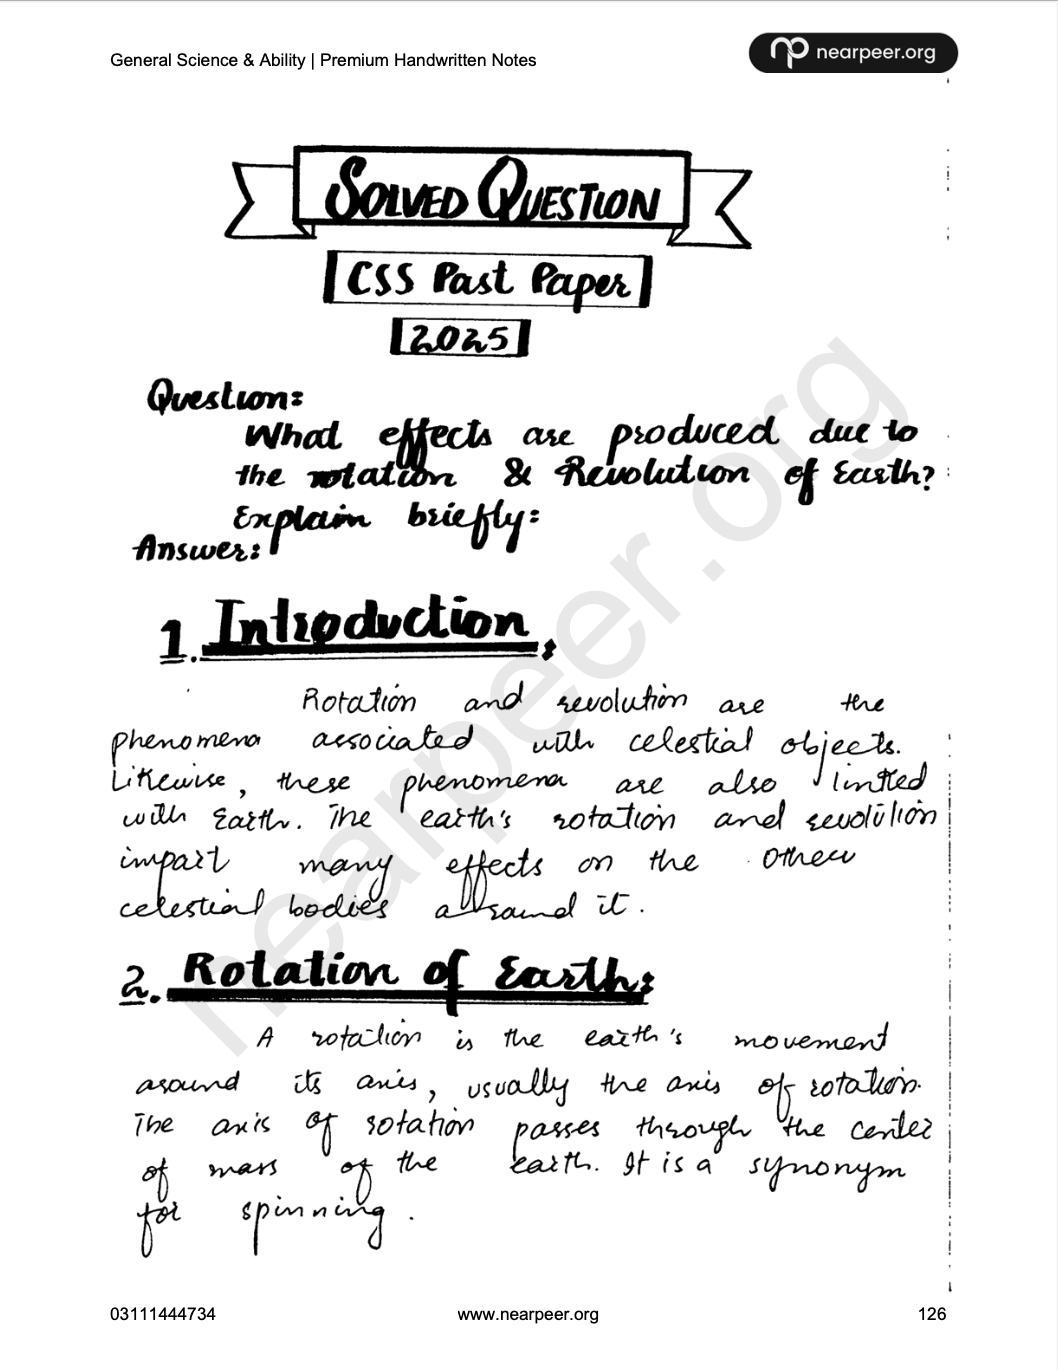 General Science & Ability | Premium Handwritten Notes
nearpeer.org
SOLVED QUESTION
CSS Past Paper
2025
Question:
What effects are produced due to
the rotation & Revolution of Earth?
Explain briefly:
Answer:
1. Introduction:
Rotation and revolution are the
phenomena associated with celestial objects.
Likewise, these phenomena are also linked
with Earth. The earth's rotation and revolution
impart many effects on the other
celestial bodies around it.
2. Rotation of Earth:
A rotation is the earth's movement
around its axis, usually the axis of rotation.
The axis of rotation passes through the center
of mass of the earth. It is a synonym
for spinning.
nearpeer.org
03111444734 www.nearpeer.org 126